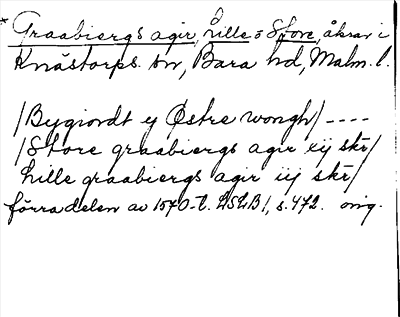 * Graabiergs agir, Lille o Store, åkrar i
Knästorps sn, Bara hd, Malm. l.
/Bygiordt ey Østre wongh/ ----
/Store graabiergs agir xij skr/
Lille graabiergs agir iij skr/
förra delen av 1570-t. LSLB1, s. 472. orig.